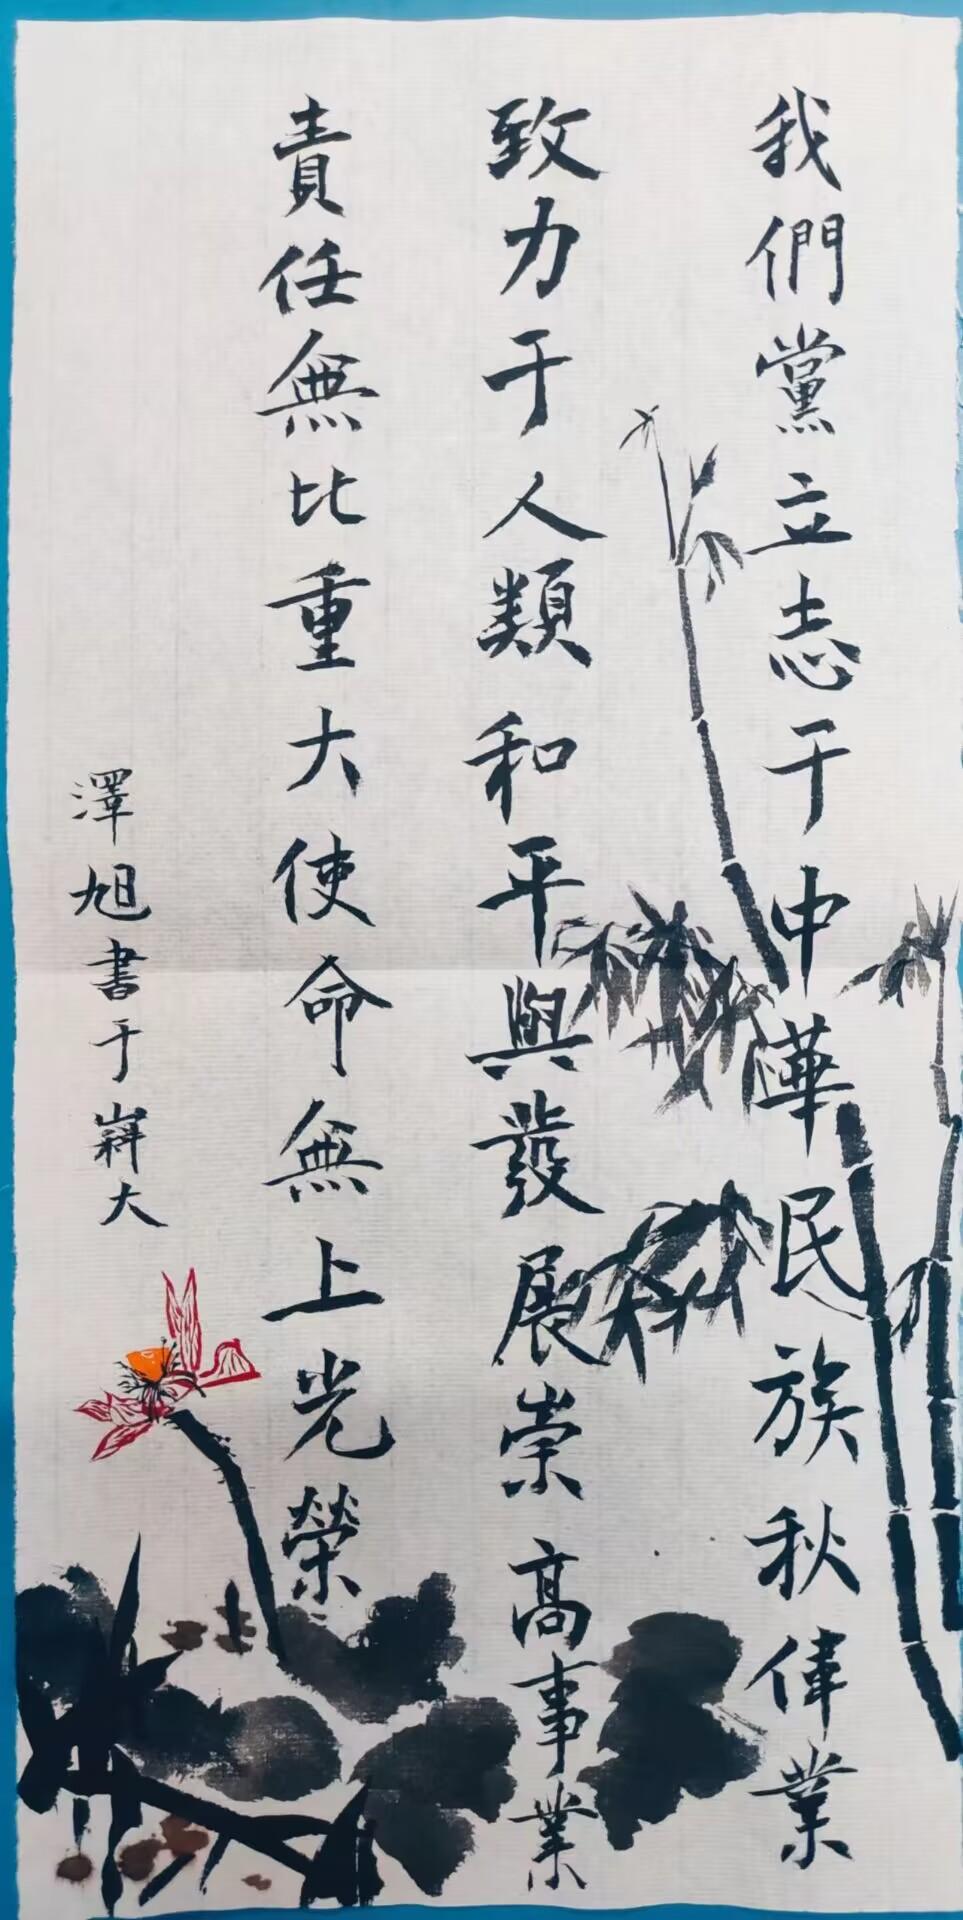 我們黨立志于中華民族秋偉業
致力于人類和平與發展崇高事業
責任無比重大使命無上光榮
澤旭書于大